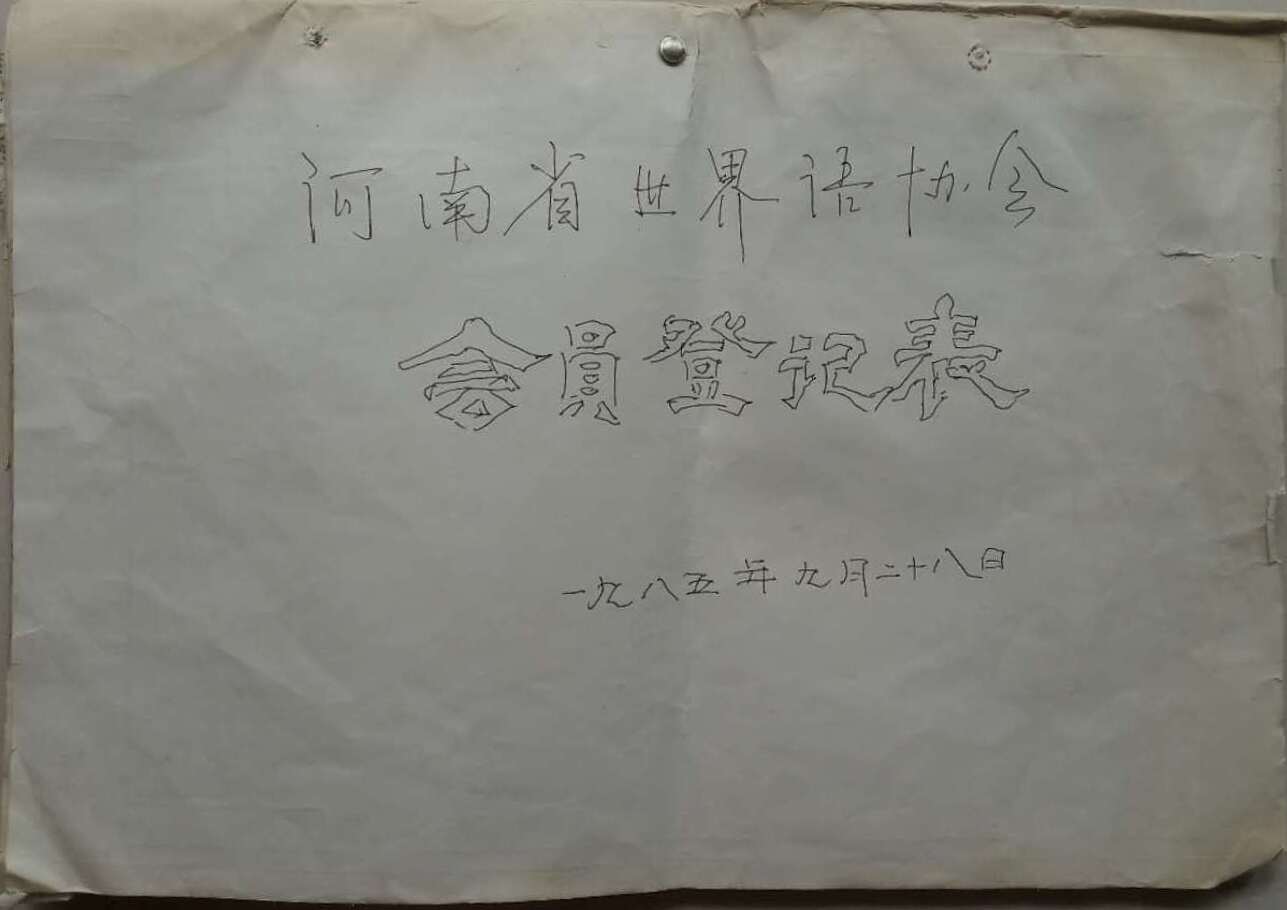 河南省世界语协会
會員登记表
一九八五年九月二十八日